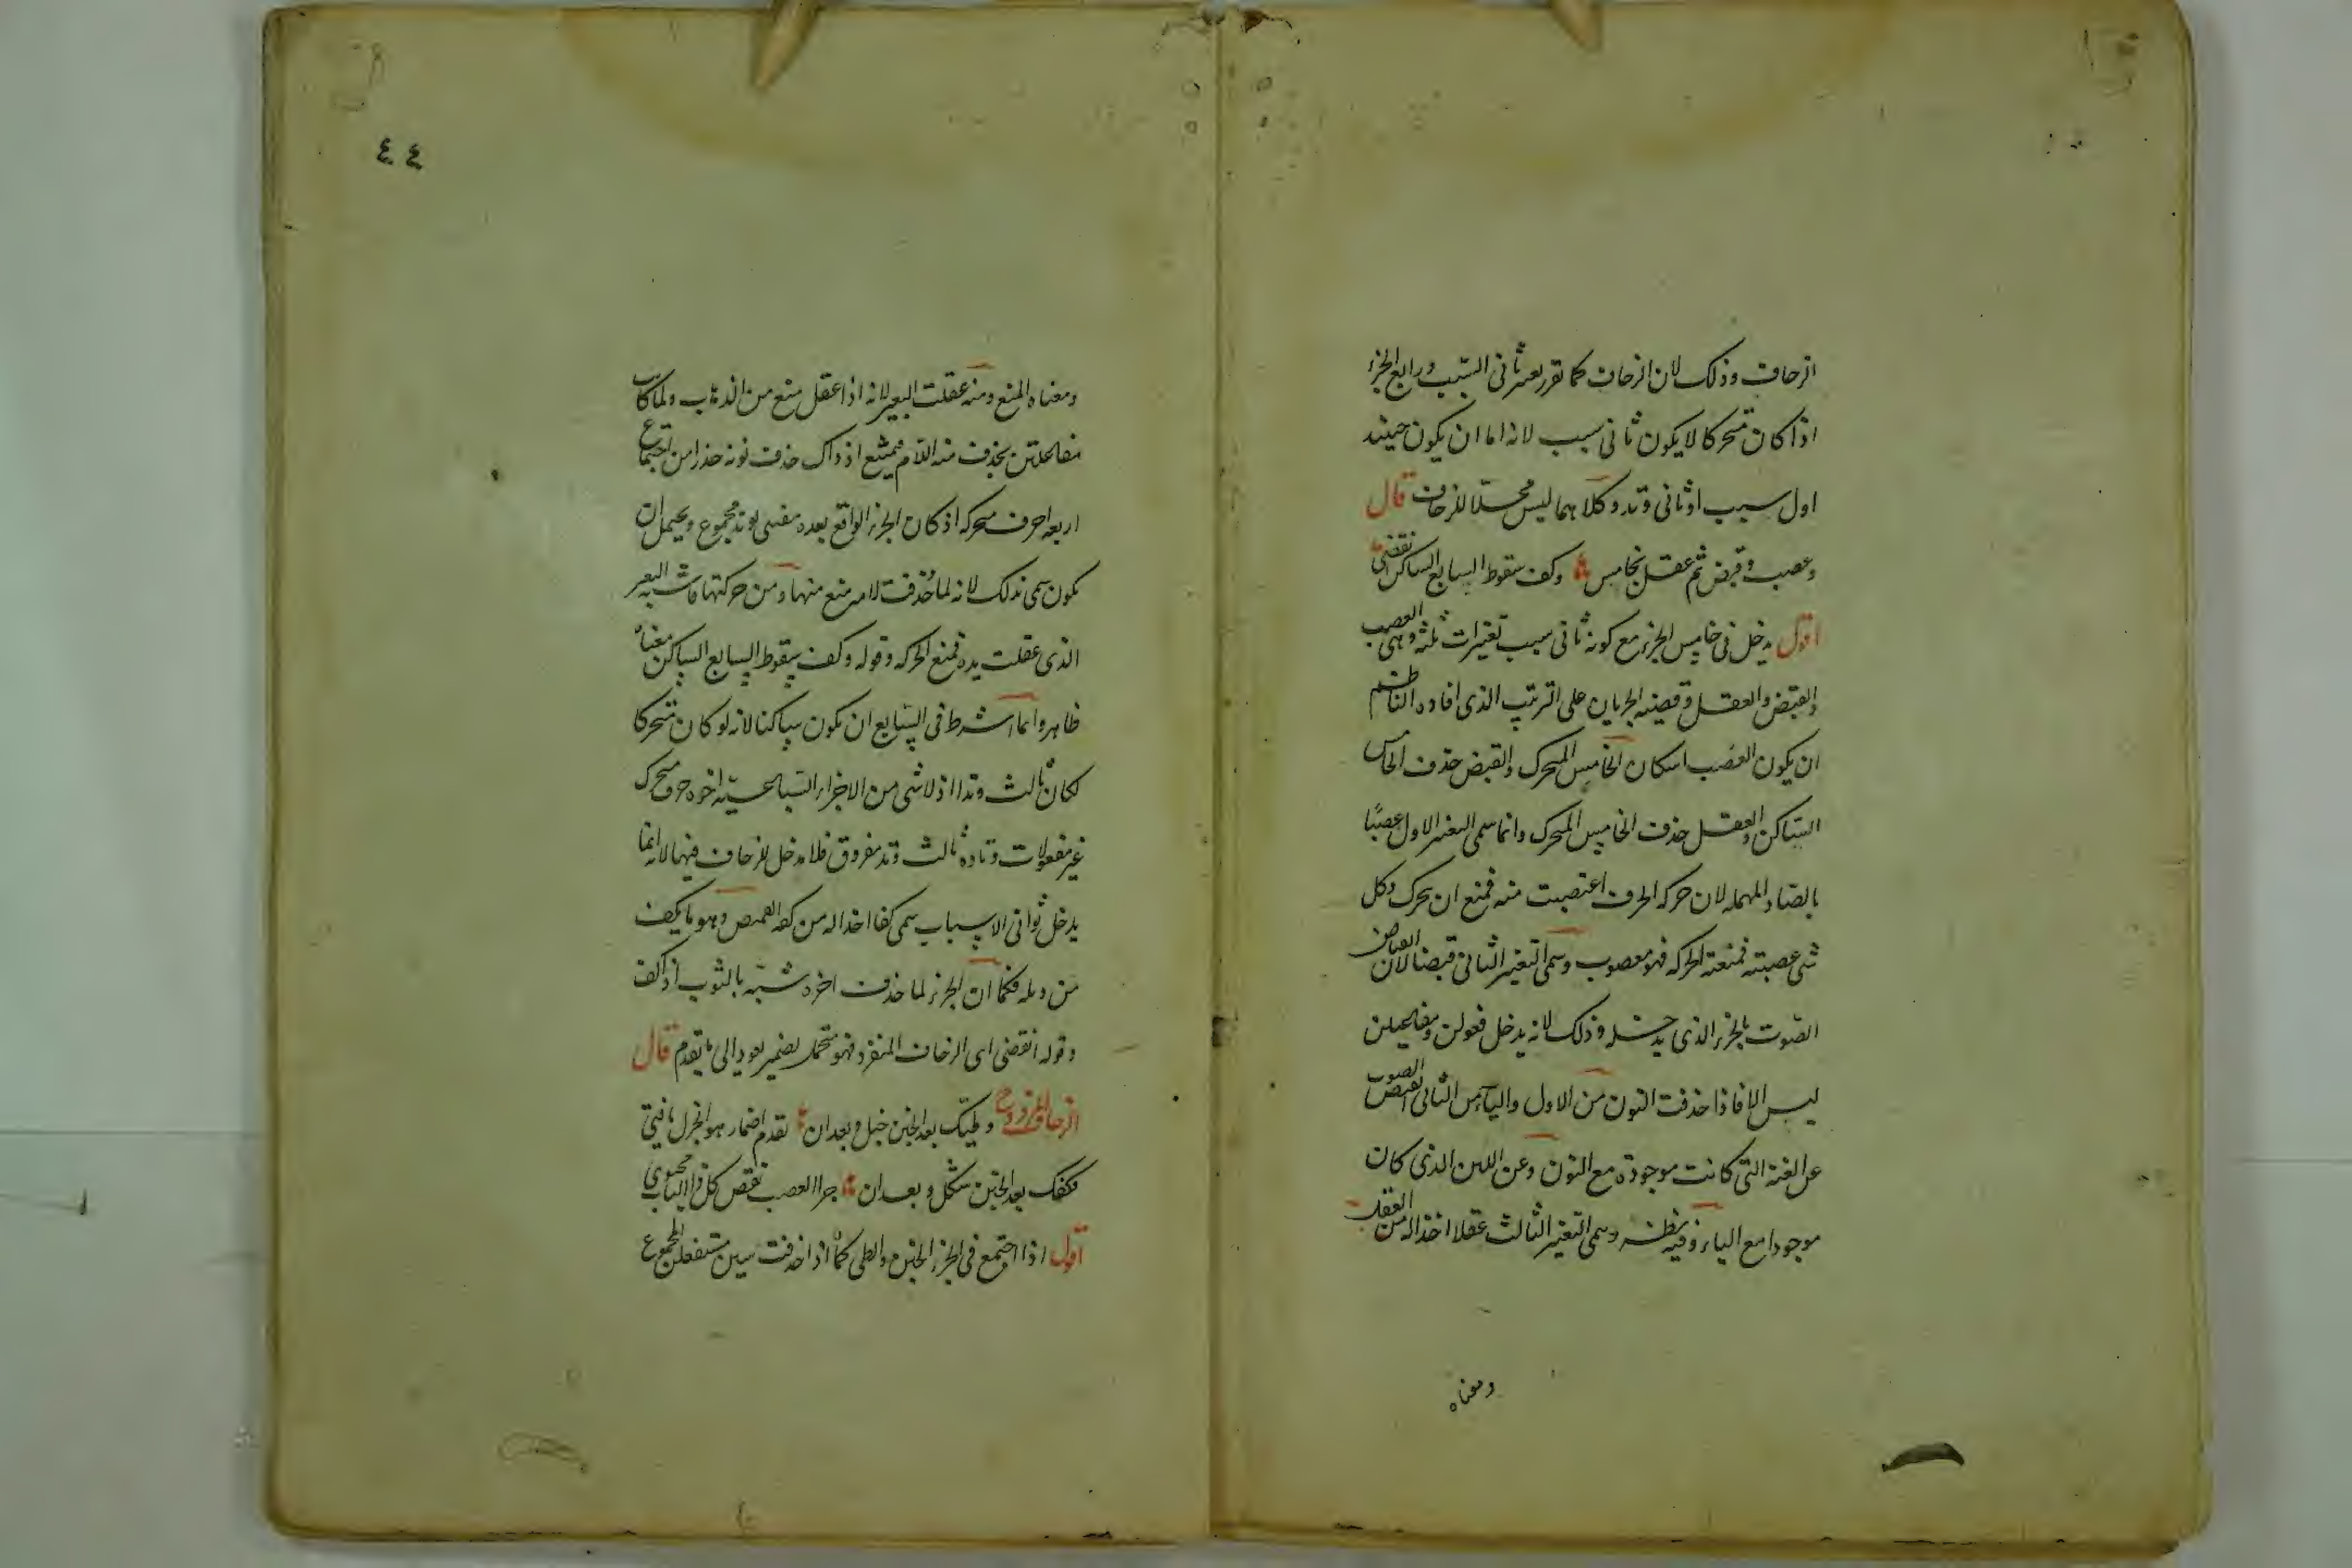 الزحاف وذلك لان الزحاف كما تقرر تغيير ثاني السبب ورابع الجزء
اذا كان متحركا لا يكون ثاني سبب لانه اما ان يكون حينئذ
اول سبب او ثاني وتد وكلاهما ليس محلا للزحاف قال
وعصب وقبض ثم عقل بخامس وكف سقوط السابع الساكن انقضى
اقول يدخل في خامس الجزء مع كونه ثاني سبب تغيرات ثلثة وهي العصب
والقبض والعقل وقضية الجريان على الترتيب الذي افاده الناظم
ان يكون العصب اسكان الخامس المتحرك والقبض حذف الخامس
الساكن والعقل حذف الخامس المتحرك وانما سمى التغير الاول عصبا
بالصاد المهملة لان حركة الحرف اعتصبت منه فمنع ان يحرك وكل
شى عصبته فمنعته الحركة فهو معصوب وسمى التغير الثاني قبضا لانقباض
الصوت بالجزء الذي يدخله وذلك لانه يدخل فعولن ومفاعيلن
ليس الا فاذا حذفت النون من الاول والياء من الثاني انقبض الصوت
عن الغنة التي كانت موجودة مع النون وعن اللين الذي كان
موجودا مع الياء وفيه نظر وسمى التغير الثالث عقلا اخذا له من العقل
ومعناه
٤٤
ومعناه المنع ومنه عقلت البعير لانه اذا عقل منع من الذهاب ولما كانت
مفاعلتن بحذف منه اللام فيمتنع اذ ذاك حذف نونه حذرا من اجتماع
اربعة احرف متحركة اذ كان الجزء الواقع بعده مفتتحا بوتد مجموع ويحتمل ان
يكون سمى بذلك لانه لما حذفت لامه منع منها ومن حركتها فاشبه البعير
الذي عقلت يده فمنع الحركة وقوله وكف سقوط السابع الساكن معناه
ظاهر وانما اشترط في السابع ان يكون ساكنا لانه لو كان متحركا
لكان ثالث وتد اذ لا شي من الاجزاء السباعية اخره حرف متحرك
غير مفعولات وتاوه ثالث وتد مفروق فلا مدخل للزحاف فيها لانه انما
يدخل ثواني الاسباب سمى كفا اخذا له من كفة القميص وهو ما يكف
من ذيله فكما ان الجزء لما حذف اخره شبه بالثوب اذا كف
وقوله انقضى اى الزحاف المنفرد فهو متحمل لضمير يعود الى ما تقدم قال
الزحاف المزدوج وطيك بعد الخبن خبل وبعد ان تقدم اضمار هو الخزل يا فتى
وكفك بعد الخبن شكل وبعد ان جرى العصب نقص كل ذا الباب مجتوى
اقول اذا اجتمع في الجزء الخبن والطي كما اذا حذفت سين مستفعلن المجموع